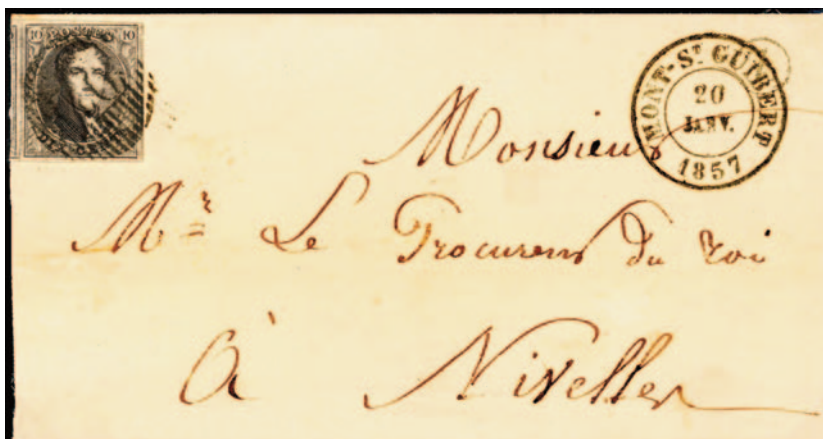 10 10
MONT-ST GUIBERT
20
JANV.
1857
Monsieur
Mr Le Procureur du roi
à Nivelles